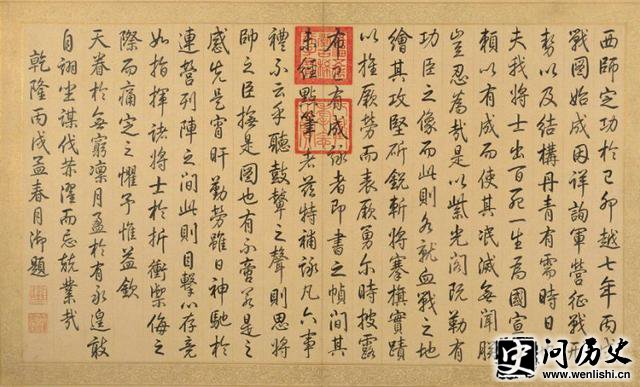 西師定功於己卯越七年丙戌
戰圖始成因詳詢軍營征戰形
勢以及結構丹青有需時日
夫我將士出百死一生為國宣
賴以有成而使其泯滅無聞朕
豈忍為哉是以紫光閣既勒有
功臣之像而此則各就血戰之地
繪其攻堅斫銳斬將搴旗實蹟
以推厥勞而表厥勇尔時披露
布有成詠者即書之幀間其
未經點筆者茲特補詠凡六事
禮不云乎聽鼓鼙之聲則思將
帥之臣撫是圖也有不啻若是之
感先是宵旰勤勞雖日神馳於
連營列陣之間此則目擊心存竟
如指揮諸將士於折衝禦侮之
際而痛定之懼予惟益欽
天眷於無窮凜月盈於有永遑敢
自詡坐謀伐濯而忘兢業哉
乾隆丙戌孟春月御題
史问历史
www.wenlishi.cn